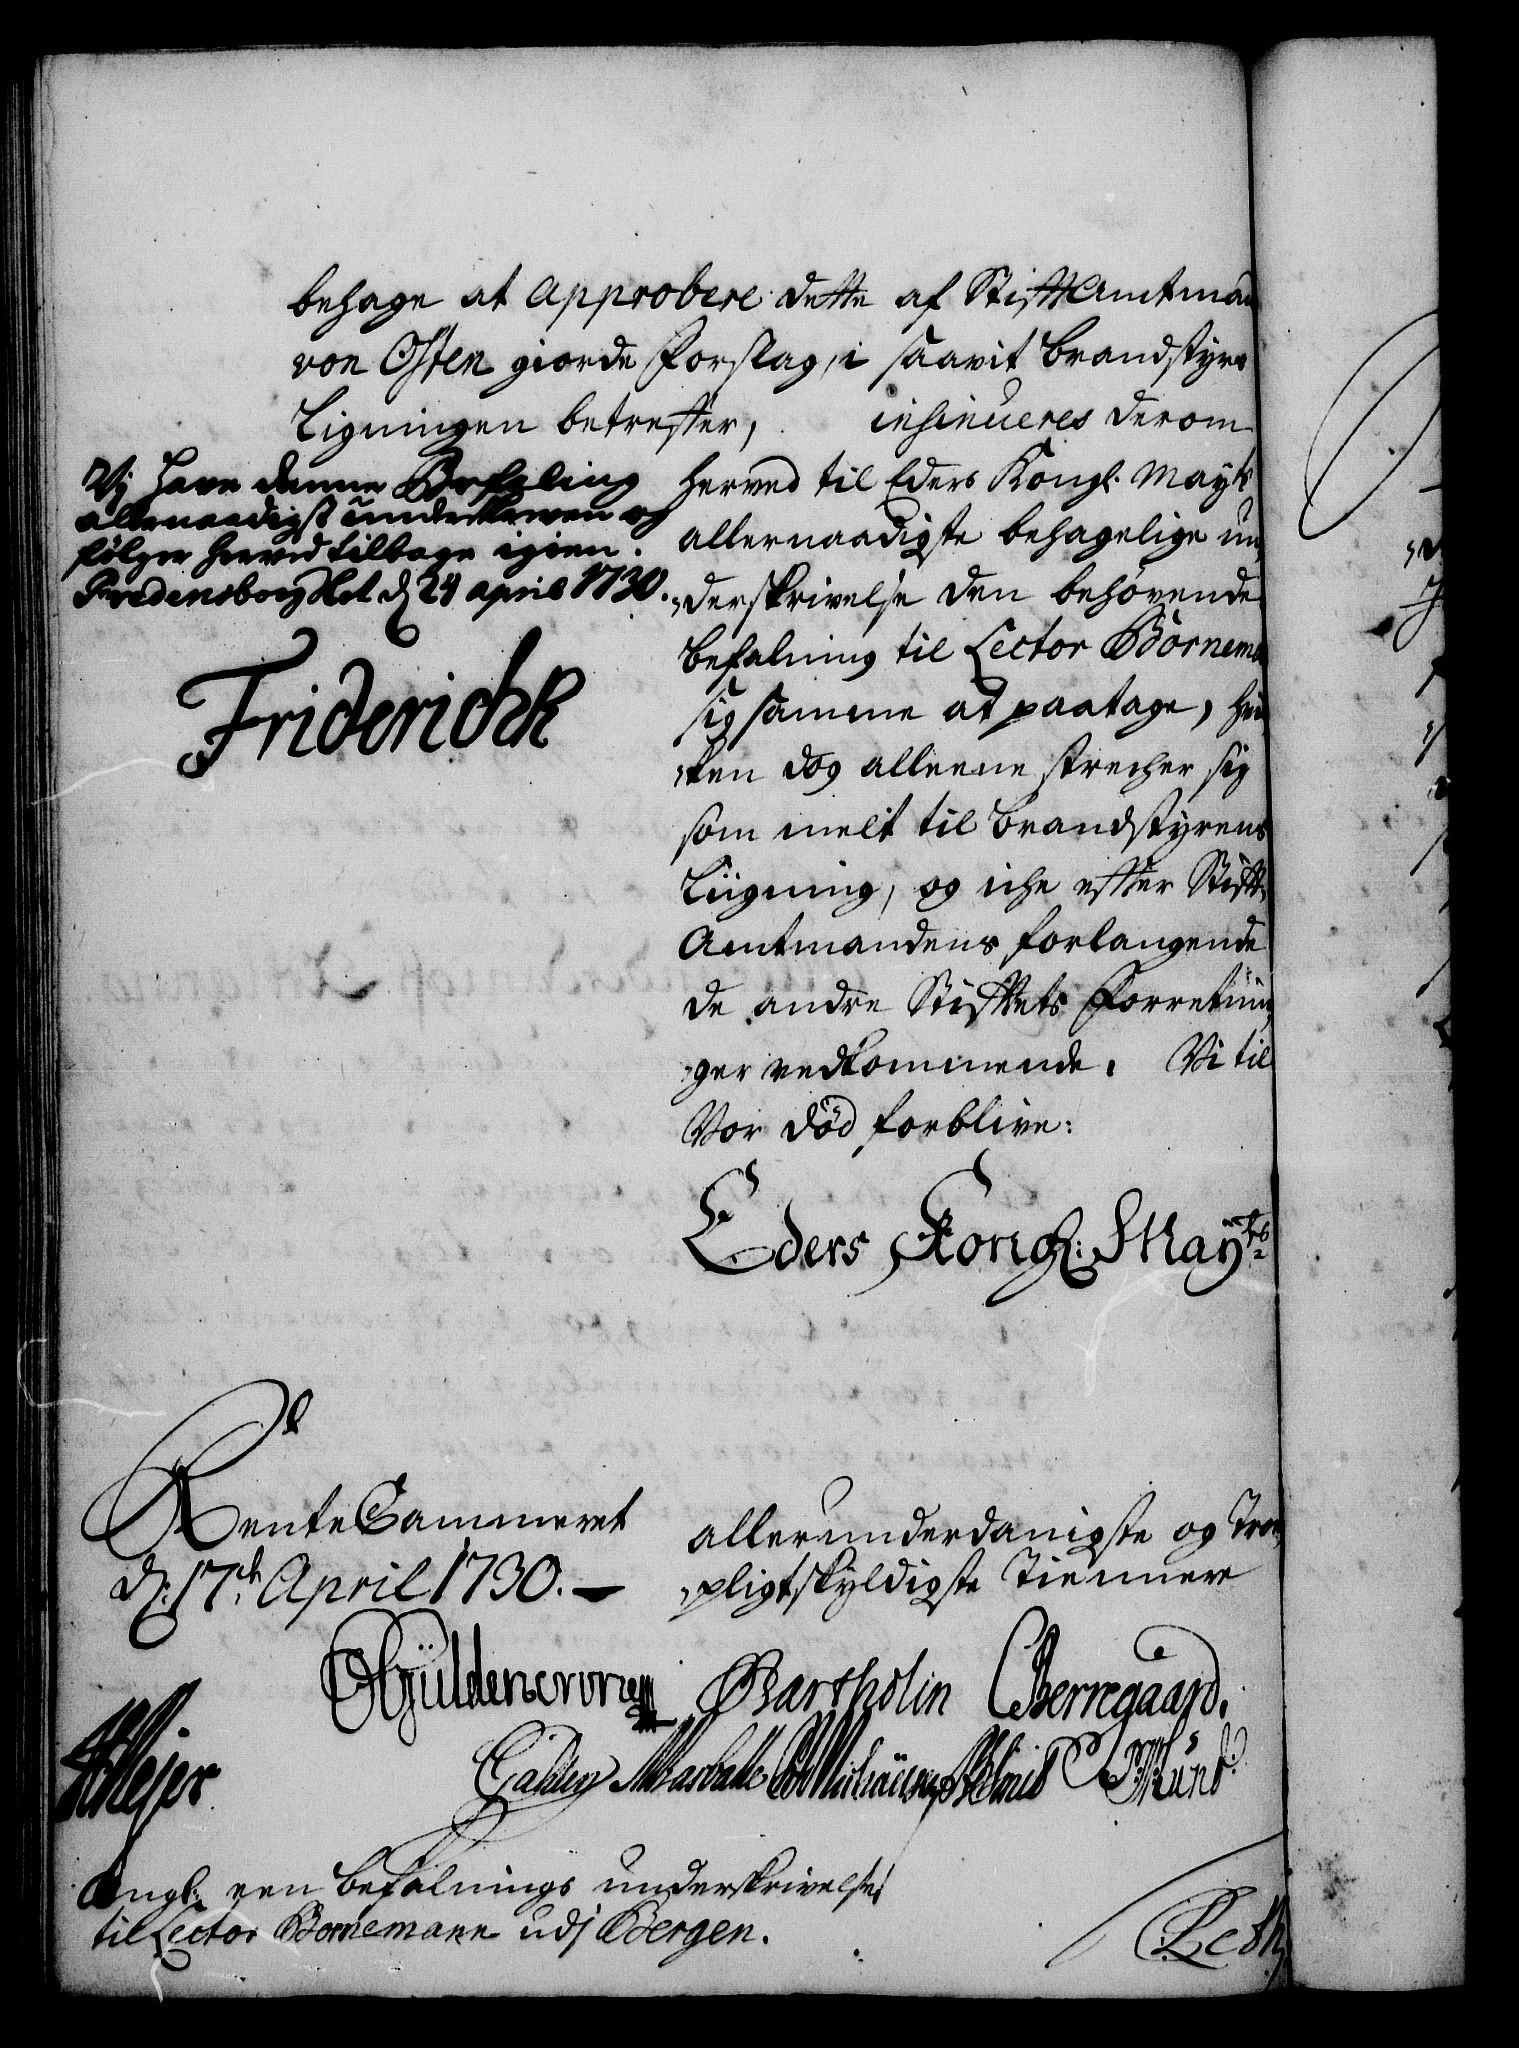 behage at approbere dette af StifftAmtman
von Osten giorde Forslag, i saavit Brandstyrs
Ligningen betreffer, insinueres derom
herved til Eders Kongl. Mayts
allernaadigste behagelige un
derskrivelse den behøvende
befalning til Lector Bornema
sig samme at paatage, hvil
ken dog alleene strecher sig
som melt til Brandstyrens
Liigning, og iche effter Stiffts
Amtmandens forlangende
de andre Stifftets Forretnin
ger vedkommende. Vi til
Vor död forblive:
Eders Kongl: Mayts
Vj have denne Befaling
allernaadigst underskreven og
fölger herved tilbage igien.
Fredensborg Slot d 24 april 1730.
Friderich R
RenteCammeret
d: 17de April 1730.
allerunderdanigste og Troe
pligtskyldigste Tiennere
Güldencrone Bartholin CBerregaard.
Meyer
Angl: een befalnings underskrivelse
til Lector Bornemann udj Bergen.